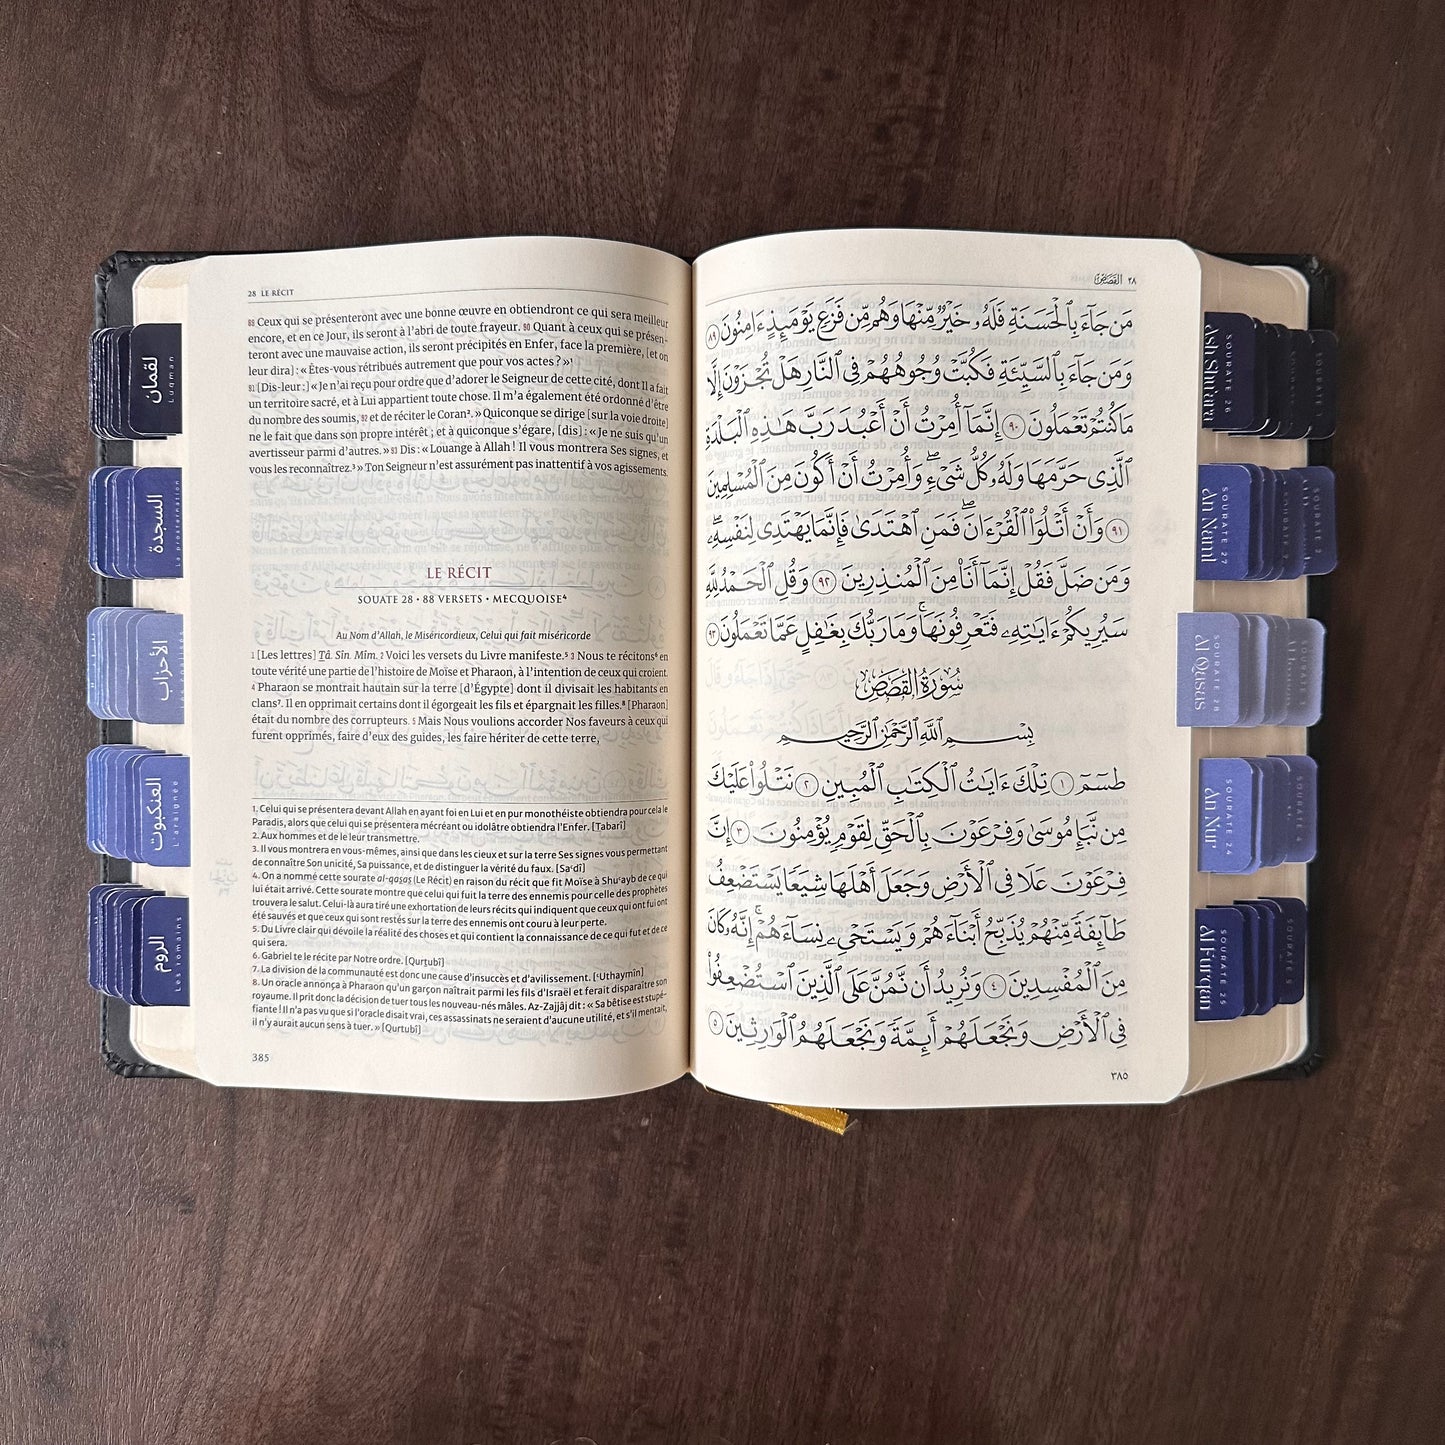 28 LE RÉCIT
89 Ceux qui se présenteront avec une bonne œuvre en obtiendront ce qui sera meilleur
encore, et en ce Jour, ils seront à l'abri de toute frayeur. 90 Quant à ceux qui se présen-
teront avec une mauvaise action, ils seront précipités en Enfer, face la première, [et on
leur dira] : « Êtes-vous rétribués autrement que pour vos actes ? »¹
91 [Dis-leur :] « Je n'ai reçu pour ordre que d'adorer le Seigneur de cette cité, dont Il a fait
un territoire sacré, et à Lui appartient toute chose. Il m'a également été ordonné d'être
du nombre des soumis, 92 et de réciter le Coran². » Quiconque se dirige [sur la voie droite]
ne le fait que dans son propre intérêt ; et à quiconque s'égare, [dis] : « Je ne suis qu'un
avertisseur parmi d'autres. » 93 Dis : « Louange à Allah ! Il vous montrera Ses signes, et
vous les reconnaîtrez.³ » Ton Seigneur n'est assurément pas inattentif à vos agissements.
LE RÉCIT
SOUATE 28 • 88 VERSETS • MECQUOISE⁴
Au Nom d'Allah, le Miséricordieux, Celui qui fait miséricorde
1 [Les lettres] Tâ. Sîn. Mîm. 2 Voici les versets du Livre manifeste.⁵ 3 Nous te récitons⁶ en
toute vérité une partie de l'histoire de Moïse et Pharaon, à l'intention de ceux qui croient.
4 Pharaon se montrait hautain sur la terre [d'Égypte] dont il divisait les habitants en
clans⁷. Il en opprimait certains dont il égorgeait les fils et épargnait les filles.⁸ [Pharaon]
était du nombre des corrupteurs. 5 Mais Nous voulions accorder Nos faveurs à ceux qui
furent opprimés, faire d'eux des guides, les faire hériter de cette terre,
1. Celui qui se présentera devant Allah en ayant foi en Lui et en pur monothéiste obtiendra pour cela le
Paradis, alors que celui qui se présentera mécréant ou idolâtre obtiendra l'Enfer. [Tabarî]
2. Aux hommes et de le leur transmettre.
3. Il vous montrera en vous-mêmes, ainsi que dans les cieux et sur la terre Ses signes vous permettant
de connaître Son unicité, Sa puissance, et de distinguer la vérité du faux. [Saʿdî]
4. On a nommé cette sourate al-qaṣaṣ (Le Récit) en raison du récit que fit Moïse à Shuʿayb de ce qui
lui était arrivé. Cette sourate montre que celui qui fuit la terre des ennemis pour celle des prophètes
trouvera le salut. Celui-là aura tiré une exhortation de leurs récits qui indiquent que ceux qui ont fui ont
été sauvés et que ceux qui sont restés sur la terre des ennemis ont couru à leur perte.
5. Du Livre clair qui dévoile la réalité des choses et qui contient la connaissance de ce qui fut et de ce
qui sera.
6. Gabriel te le récite par Notre ordre. [Qurṭubî]
7. La division de la communauté est donc une cause d'insuccès et d'avilissement. [ʿUthaymîn]
8. Un oracle annonça à Pharaon qu'un garçon naîtrait parmi les fils d'Israël et ferait disparaître son
royaume. Il prit donc la décision de tuer tous les nouveau-nés mâles. Az-Zajjâj dit : « Sa bêtise est stupé-
fiante ! Il n'a pas vu que si l'oracle disait vrai, ces assassinats ne seraient d'aucune utilité, et s'il mentait,
il n'y aurait aucun sens à tuer. » [Qurtubî]
385
٢٨ القصص
مَن جَآءَ بِٱلْحَسَنَةِ فَلَهُۥ خَيْرٌ مِّنْهَا وَهُم مِّن فَزَعٍ يَوْمَئِذٍ ءَامِنُونَ ٨٩
وَمَن جَآءَ بِٱلسَّيِّئَةِ فَكُبَّتْ وُجُوهُهُمْ فِى ٱلنَّارِ هَلْ تُجْزَوْنَ إِلَّا
مَا كُنتُمْ تَعْمَلُونَ ٩٠ إِنَّمَآ أُمِرْتُ أَنْ أَعْبُدَ رَبَّ هَـٰذِهِ ٱلْبَلْدَةِ
ٱلَّذِى حَرَّمَهَا وَلَهُۥ كُلُّ شَىْءٍ ۖ وَأُمِرْتُ أَنْ أَكُونَ مِنَ ٱلْمُسْلِمِينَ
٩١ وَأَنْ أَتْلُوَا۟ ٱلْقُرْءَانَ ۖ فَمَنِ ٱهْتَدَىٰ فَإِنَّمَا يَهْتَدِى لِنَفْسِهِۦ ۖ
وَمَن ضَلَّ فَقُلْ إِنَّمَآ أَنَا۠ مِنَ ٱلْمُنذِرِينَ ٩٢ وَقُلِ ٱلْحَمْدُ لِلَّهِ
سَيُرِيكُمْ ءَايَـٰتِهِۦ فَتَعْرِفُونَهَا ۚ وَمَا رَبُّكَ بِغَـٰفِلٍ عَمَّا تَعْمَلُونَ ٩٣
سُورَةُ القَصَصِ
بِسْمِ ٱللَّهِ ٱلرَّحْمَـٰنِ ٱلرَّحِيمِ
طسٓمٓ ١ تِلْكَ ءَايَـٰتُ ٱلْكِتَـٰبِ ٱلْمُبِينِ ٢ نَتْلُوا۟ عَلَيْكَ
مِن نَّبَإِ مُوسَىٰ وَفِرْعَوْنَ بِٱلْحَقِّ لِقَوْمٍ يُؤْمِنُونَ ٣ إِنَّ
فِرْعَوْنَ عَلَا فِى ٱلْأَرْضِ وَجَعَلَ أَهْلَهَا شِيَعًا يَسْتَضْعِفُ
طَآئِفَةً مِّنْهُمْ يُذَبِّحُ أَبْنَآءَهُمْ وَيَسْتَحْىِۦ نِسَآءَهُمْ ۚ إِنَّهُۥ كَانَ
مِنَ ٱلْمُفْسِدِينَ ٤ وَنُرِيدُ أَن نَّمُنَّ عَلَى ٱلَّذِينَ ٱسْتُضْعِفُوا۟
فِى ٱلْأَرْضِ وَنَجْعَلَهُمْ أَئِمَّةً وَنَجْعَلَهُمُ ٱلْوَٰرِثِينَ ٥
٣٨٥
لقمان
Luqman
السجدة
La prosternation
الأحزاب
Les coalisés
العنكبوت
L'araignée
الروم
Les romains
SOURATE 26
Ash Shu'ara
SOURATE 1
SOURATE 27
An Naml
SOURATE 2
SOURATE 28
Al Qasas
SOURATE 24
An Nur
SOURATE 4
SOURATE 25
Al Furqan
SOURATE 5